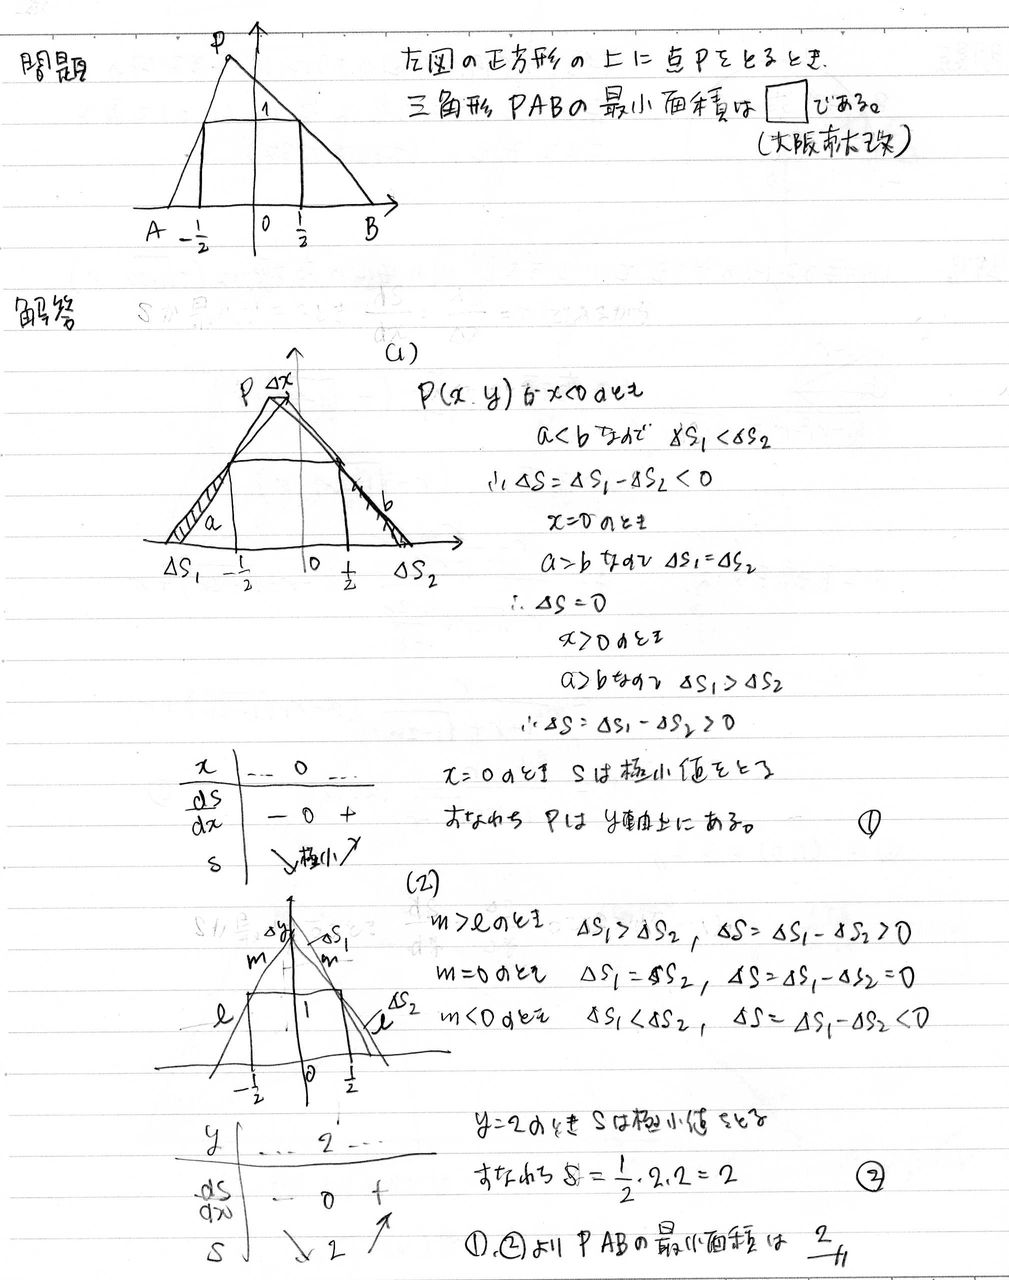 問題
P
1
A -1/2 0 1/2 B
左図の正方形の上に点Pをとるとき.
三角形PABの最小面積は□である。
(大阪市大改)
解答
(1)
P Δx
a b
ΔS₁ -1/2 0 1/2 ΔS₂
P(x.y)がx<0のとき
a<bなので ΔS₁<ΔS₂
∴ΔS=ΔS₁-ΔS₂<0
x=0のとき
a=bなので ΔS₁=ΔS₂
∴ΔS=0
x>0のとき
a>bなので ΔS₁>ΔS₂
∴ΔS=ΔS₁-ΔS₂>0
x … 0 …
dS/dx - 0 +
S ↘極小↗
x=0のとき Sは極小値をとる
すなわち Pはy軸上にある。 ①
(2)
Δy ΔS₁
m m
l 1 l ΔS₂
-1/2 0 1/2
m>lのとき ΔS₁>ΔS₂, ΔS=ΔS₁-ΔS₂>0
m=0のとき ΔS₁=ΔS₂, ΔS=ΔS₁-ΔS₂=0
m<0のとき ΔS₁<ΔS₂, ΔS=ΔS₁-ΔS₂<0
y … 2 …
dS/dx - 0 +
S ↘ 2 ↗
y=2のとき Sは極小値をとる
すなわち S=1/2・2.2=2 ②
①.②より PABの最小面積は 2